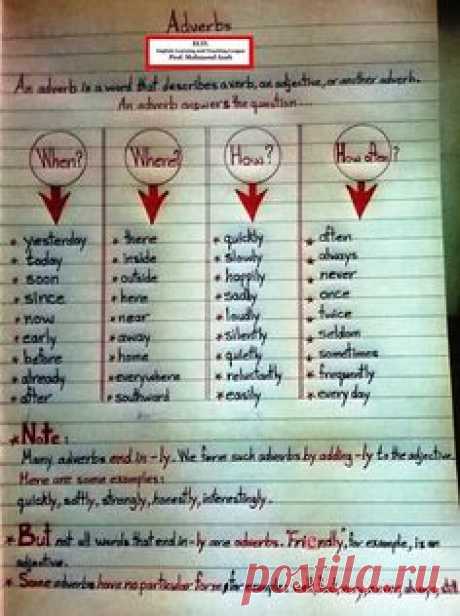 Adverbs
ELTL
English Learning and Teaching League
An adverb is a word that describes a verb, an adjective, or another adverb.
An adverb answers the question....
When? Where? How? How often?
* yesterday * there * quickly * often
* today * inside * slowly * always
* soon * outside * happily * never
* since * here * sadly * once
* now * near * loudly * twice
* early * away * silently * seldom
* before * home * quietly * sometimes
* already * everywhere * reluctantly * frequently
* after * southward * easily * every day
* Note:
Many adverbs end in -ly. We form such adverbs by adding -ly to the adjective.
Here are some examples:
quickly, softly, strongly, honestly, interestingly.
* But not all words that end in -ly are adverbs. "Friendly", for example, is an
adjective.
* Some adverbs have no particular form, for example: well, fast, very, never, always, still